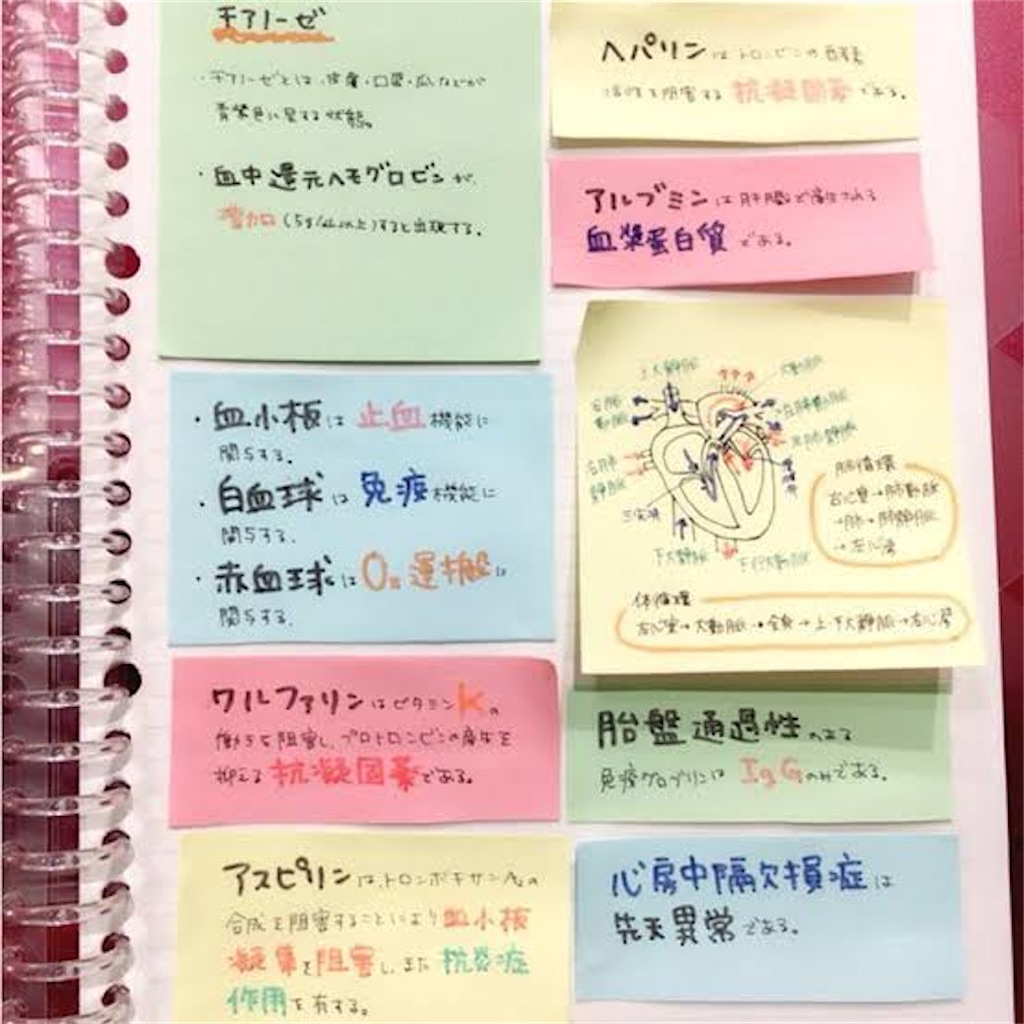 チアノーゼ
・チアノーゼとは、皮膚・口唇・爪などが
青紫色に呈する状態。
・血中還元ヘモグロビンが、
増加(5g/dL以上)すると出現する。
・血小板は止血機能に
関与する。
・白血球は免疫機能に
関与する。
・赤血球はO₂運搬に
関与する。
ワルファリンはビタミンKの
働きを阻害し、プロトロンビンの産生を
抑える抗凝固薬である。
アスピリンは、トロンボキサンA₂の
合成を阻害することにより血小板
凝集を阻害し、また抗炎症
作用を有する。
ヘパリンはトロンビンの酵素
活性を阻害する抗凝固薬である。
アルブミンは肝臓で産生される
血漿蛋白質である。
上大静脈
大動脈
右肺
動脈
左肺動脈
左肺静脈
右肺
静脈
三尖弁
下大静脈
下行大動脈
肺循環
右心室→肺動脈
→肺→肺静脈
→左心房
体循環
左心室→大動脈→全身→上・下大静脈→右心房
胎盤通過性のある
免疫グロブリンはIgGのみである。
心房中隔欠損症は
先天異常である。